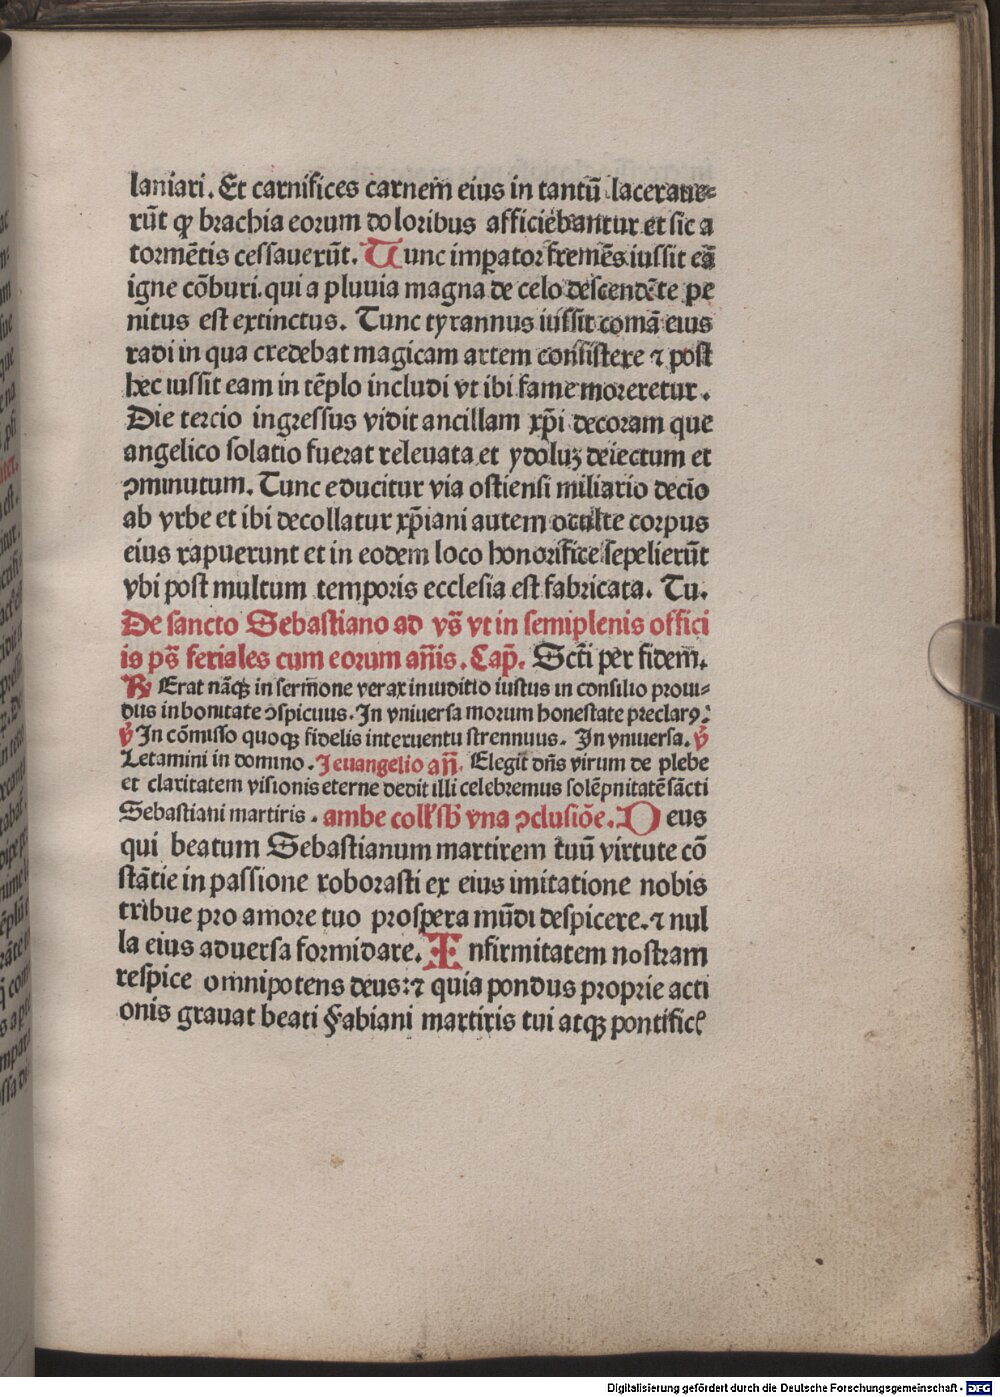 laniari. Et carnifices carnem eius in tantū laceraue⸗
rūt ꝙ brachia eorum doloribus afficiebantur et sic a
tormētis cessauerūt. Tunc imꝑator fremēs iussit eā
igne cōburi. qui a pluuia magna de celo descendēte pe
nitus est extinctus. Tunc tyrannus iussit comā eius
radi in qua credebat magicam artem consistere ⁊ post
hec iussit eam in tēplo includi vt ibi fame moreretur.
Die tercio ingressus vidit ancillam xp̄i decoram que
angelico solatio fuerat releuata et ydoluꝫ deiectum et
ꝯminutum. Tunc educitur via ostiensi miliario decīo
ab vrbe et ibi decollatur xp̄iani autem occulte corpus
eius rapuerunt et in eodem loco honorifice sepelierūt
vbi post multum temporis ecclesia est fabricata. Tu.
De sancto Sebastiano ad vs̄ vt in semiplenis offici
is ps̄ feriales cum eorum an̄is. Cap̄. Scti per fidem̄.
℟ Erat nāqꝫ in sermone verax in iuditio iustus in consilio proui⸗
dus in bonitate ꝯspicuus. In vniuersa morum honestate preclarꝰ.
℣ In cōmisso quoqꝫ fidelis interuentu strennuus. In vniuersa. ℣
Letamini in domino. In euangelio an̄. Elegit dn̄s virum de plebe
et claritatem visionis eterne dedit illi celebremus solēpnitatē sācti
Sebastiani martiris. ambe coll' sb̄ vna ꝯclusiōe. Deus
qui beatum Sebastianum martirem tuū virtute cō
stātie in passione roborasti ex eius imitatione nobis
tribue pro amore tuo prospera mūdi despicere. ⁊ nul
la eius aduersa formidare. Infirmitatem nostram
respice omnipotens deus: ⁊ quia pondus proprie acti
onis grauat beati Fabiani martiris tui atqꝫ pontific̄
Digitalisierung gefördert durch die Deutsche Forschungsgemeinschaft - DFG